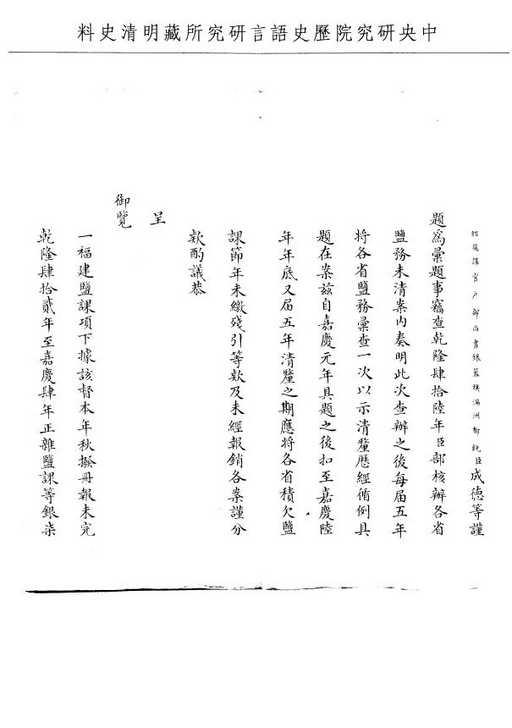 中央研究院歷史語言研究所藏明清史料
經筵講官戶部尚書鑲藍旗滿洲都統臣成德等謹
題為彙題事竊查乾隆肆拾陸年臣部核辦各省
鹽務未清案內奏明此次查辦之後每屆五年
將各省鹽務彙查一次以示清釐歷經循例具
題在案茲自嘉慶元年具題之後扣至嘉慶陸
年年底又屆五年清釐之期應將各省積欠鹽
課節年未繳殘引等款及未經報銷各案謹分
款酌議恭
呈
御覽
一福建鹽課項下據該督本年秋撥冊報未完
乾隆肆拾貳年至嘉慶肆年正雜鹽課等銀柒